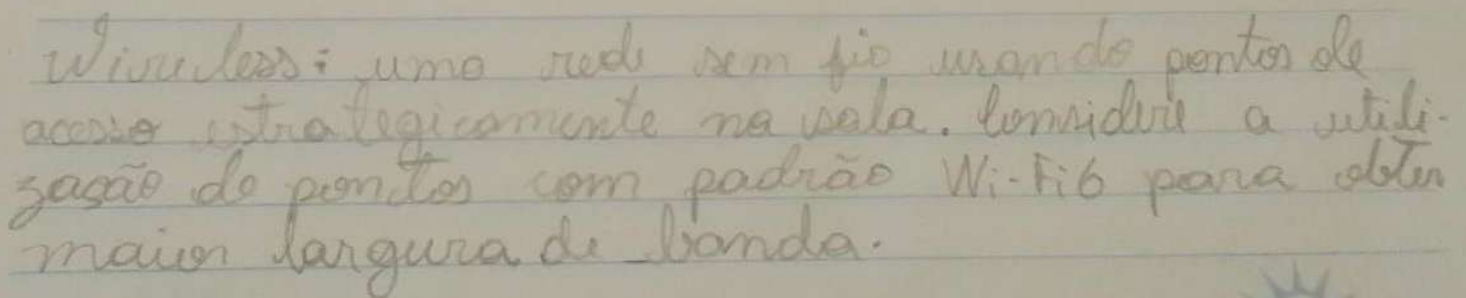 Wireless: uma rede sem fio usando pontos de
acesso estrategicamente na sala. Considere a utili-
zação do pontos com padrão Wi-Fi 6 para obter
maior largura de banda.